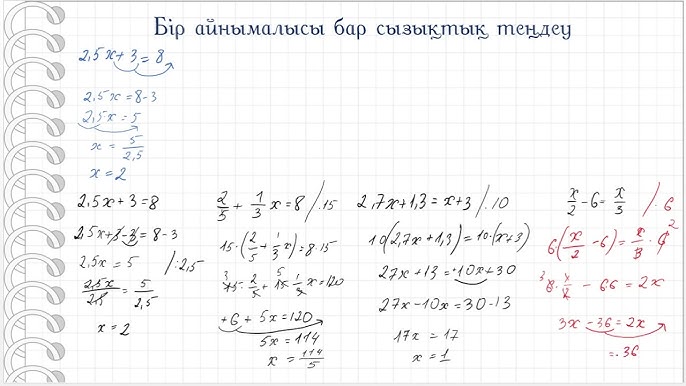 Бір айнымалысы бар сызықтық теңдеу
2,5x+3=8
2,5x=8-3
2,5x=5
x=5/2,5
x=2
2,5x+3=8
2,5x+3-3=8-3
2,5x=5 /:2,5
2,5x/2,5=5/2,5
x=2
2/5+1/3x=8 /·15
15·(2/5+1/3x)=8·15
15·2/5+15·1/3x=120
+6+5x=120
5x=114
x=114/5
2,7x+1,3=x+3 /·10
10(2,7x+1,3)=10·(x+3)
27x+13=10x+30
27x-10x=30-13
17x=17
x=1
x/2-6=x/3 /·6
6(x/2-6)=x/3·6
6·x/2-6·6=2x
3x-36=2x
=-36